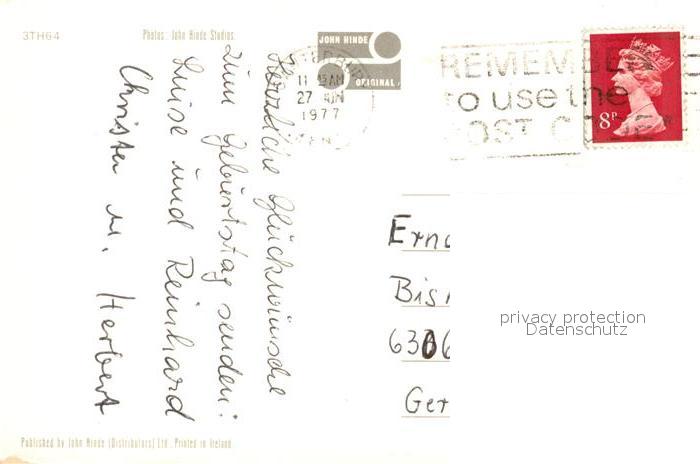 3TH64
Photos: John Hinde Studios.
JOHN HINDE
ORIGINAL
11 AM
27 JUN
1977
REMEMBER
to use the
POST CODE
8P
Herzliche Glückwünsche
zum Geburtstag senden:
Luise und Reinhard
Christen u. Herbert
Ern
Bis
6306
Ger
privacy protection
Datenschutz
Published by John Hinde (Distributors) Ltd. Printed in Ireland.